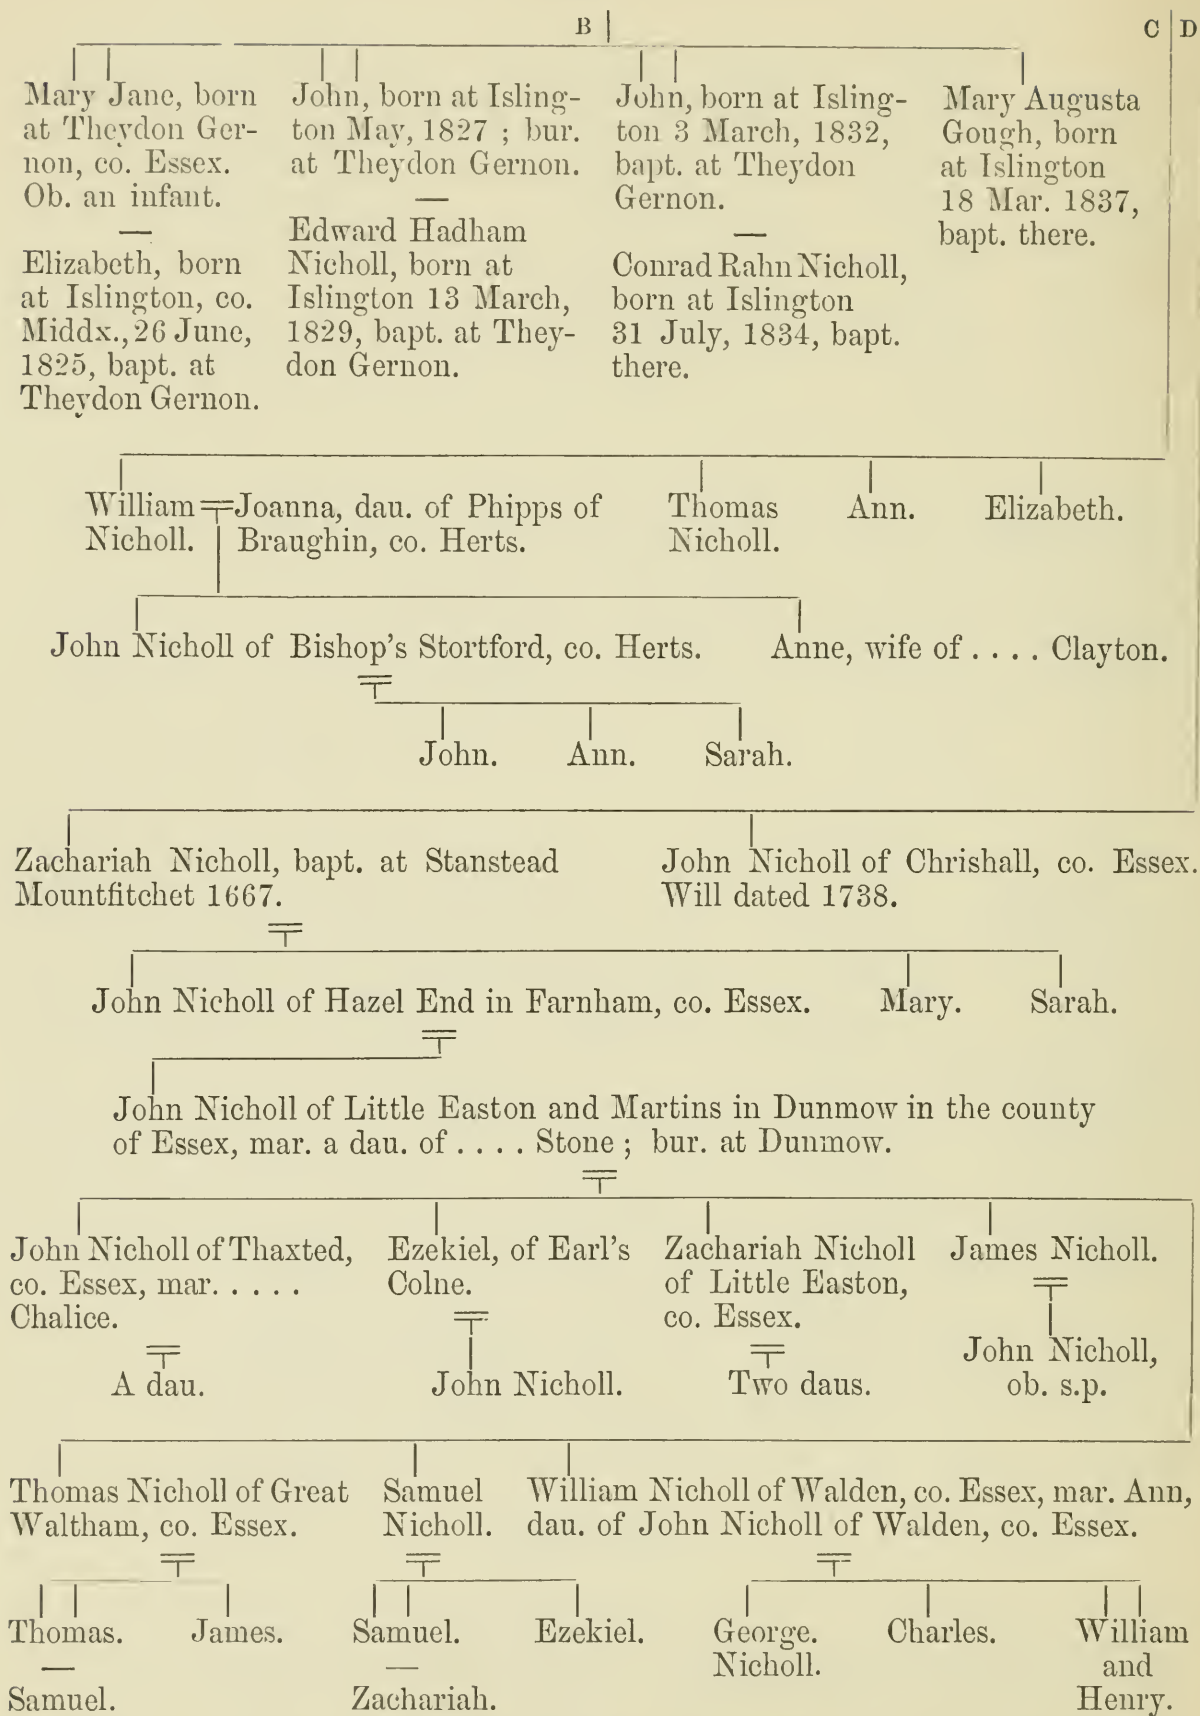 B
C D
Mary Jane, born
at Theydon Ger-
non, co. Essex.
Ob. an infant.
—
Elizabeth, born
at Islington, co.
Middx., 26 June,
1825, bapt. at
Theydon Gernon.
John, born at Isling-
ton May, 1827 ; bur.
at Theydon Gernon.
—
Edward Hadham
Nicholl, born at
Islington 13 March,
1829, bapt. at They-
don Gernon.
John, born at Isling-
ton 3 March, 1832,
bapt. at Theydon
Gernon.
—
Conrad Rahn Nicholl,
born at Islington
31 July, 1834, bapt.
there.
Mary Augusta
Gough, born
at Islington
18 Mar. 1837,
bapt. there.
William
Nicholl.
Joanna, dau. of Phipps of
Braughin, co. Herts.
Thomas
Nicholl.
Ann.
Elizabeth.
John Nicholl of Bishop's Stortford, co. Herts.
Anne, wife of . . . . Clayton.
John.
Ann.
Sarah.
Zachariah Nicholl, bapt. at Stanstead
Mountfitchet 1667.
John Nicholl of Chrishall, co. Essex.
Will dated 1738.
John Nicholl of Hazel End in Farnham, co. Essex.
Mary.
Sarah.
John Nicholl of Little Easton and Martins in Dunmow in the county
of Essex, mar. a dau. of . . . . Stone ; bur. at Dunmow.
John Nicholl of Thaxted,
co. Essex, mar. . . . .
Chalice.
A dau.
Ezekiel, of Earl's
Colne.
John Nicholl.
Zachariah Nicholl
of Little Easton,
co. Essex.
Two daus.
James Nicholl.
John Nicholl,
ob. s.p.
Thomas Nicholl of Great
Waltham, co. Essex.
Samuel
Nicholl.
William Nicholl of Walden, co. Essex, mar. Ann,
dau. of John Nicholl of Walden, co. Essex.
Thomas.
—
Samuel.
James.
Samuel.
—
Zachariah.
Ezekiel.
George.
Nicholl.
Charles.
William
and
Henry.